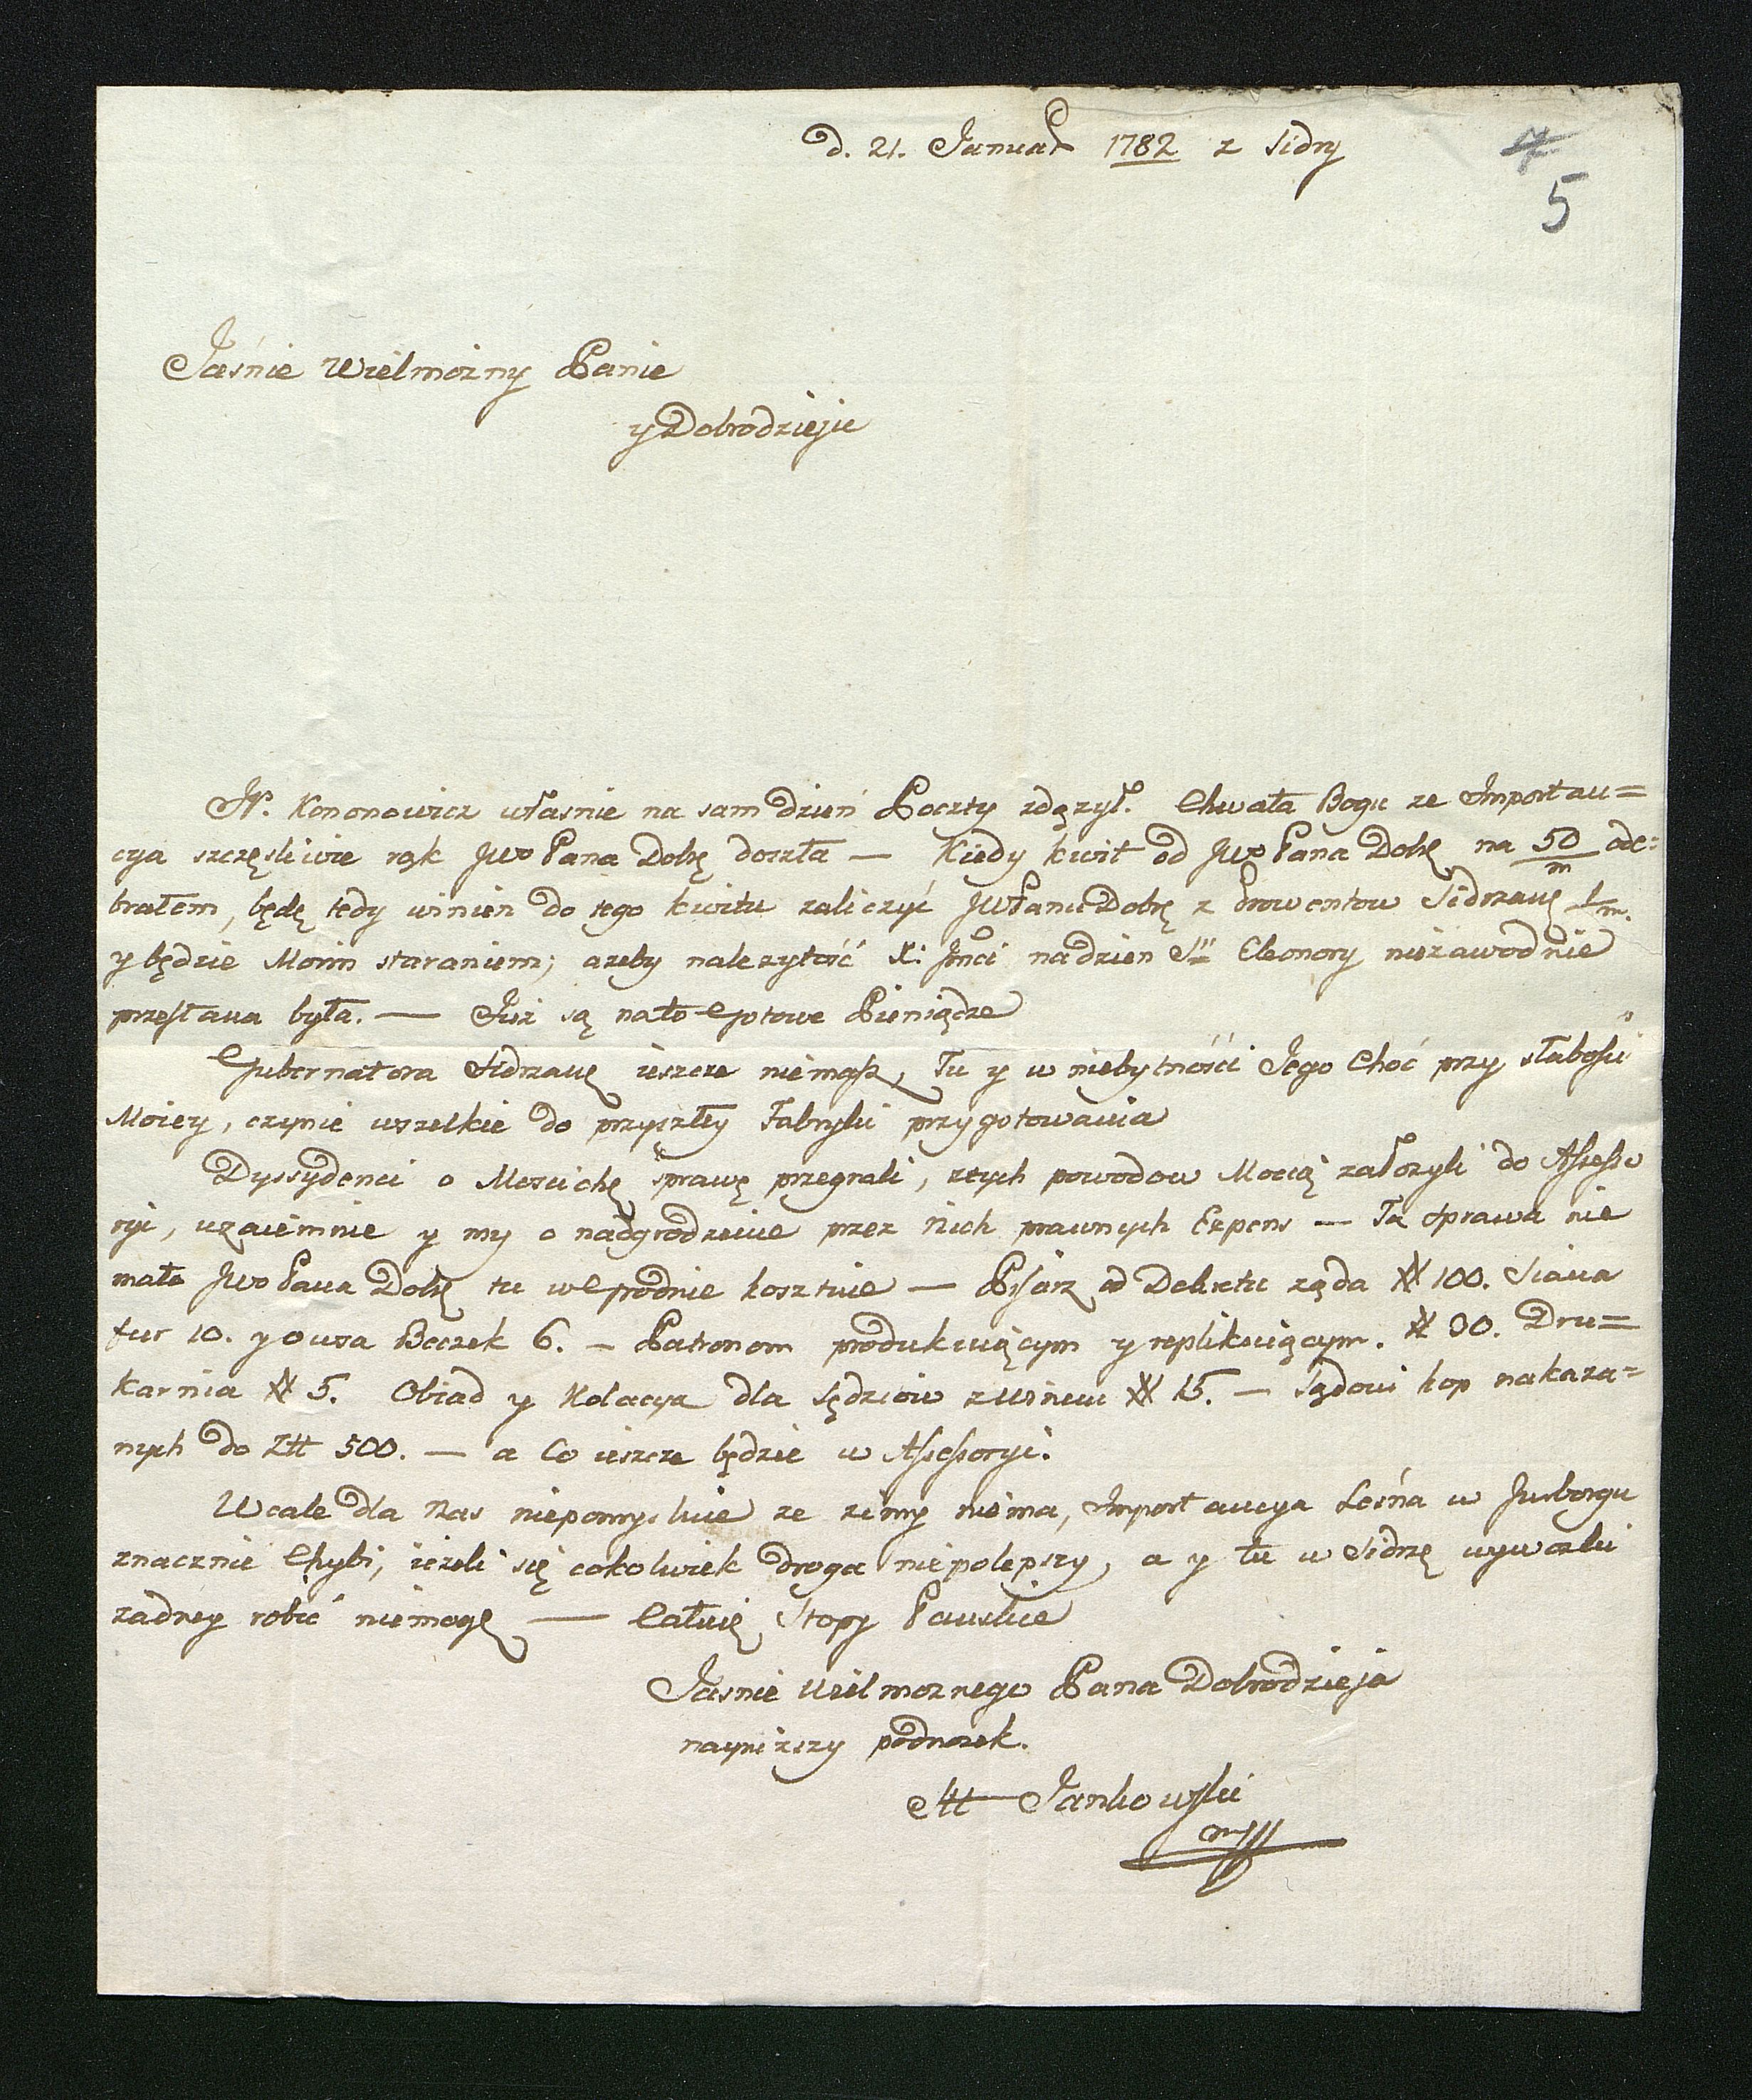 d. 21. Januar 1782 z Sidry
5
Jaśnie Wielmożny Panie
y Dobrodzieju
JP. Kononowicz własnie na sam dzień Poczty zdążył. Chwała Bogu ze Importan=
cya szczęsliwie rąk JWo Pana Dobrę doszła — Kiedy kwit od JWo Pana Dobrę na 50/m ode=
brałem, będę tedy winien do tego kwitu zaliczyć JWPanu Dobrę z Prowentow Sidrzanę 1/m.
y będzie Moim staraniem; azeby nalezytość X: Jmci nadzien S Eleonory niezawodnie
przesłana była. — Już są nato Gotowe Pieniądze
Gubernatora Sidrzanę ieszcze niemasz, Tu y w niebytności Jego Choć przy słabości
Moiey, czynie wszelkie do przyszłey Fabryki przygotowania
Dyssydenci o Moscichę sprawę przegrali, ztych powodow Mocią załozyli do Assesso
ryi, wzaiemnie y my o nadgrodzenie przez nich prawnych Expens — Ta sprawa nie
mało JWo Pana Dobrę tu w Grodnie kosztuie — Pisarz od Dekretu ząda # 100. Siana
fur 10. y owsa Beczek 6. — Patronom produkuiącym y replikuiącym. # 30. Dru=
karnia # 5. Obiad y Kolacya dla Sędziow z winem # 15. — Sądowi kop nakaza=
nych do Złł 500. — a Co ieszcze będzie w Assessoryi.
Wcale dla Nas niepomyslnie ze zimy niema, Importancya Leśna w Jurborgu
znacznie Chybi, iezeli się cokolwiek droga niepolepszy, a y tu w Sidrzę wywozki
zadney robić niemogę — Całuię Stopy Panskie
Jasnie Wielmoznego Pana Dobrodzieja
nayniższy podnozek.
M Jankowski
mp